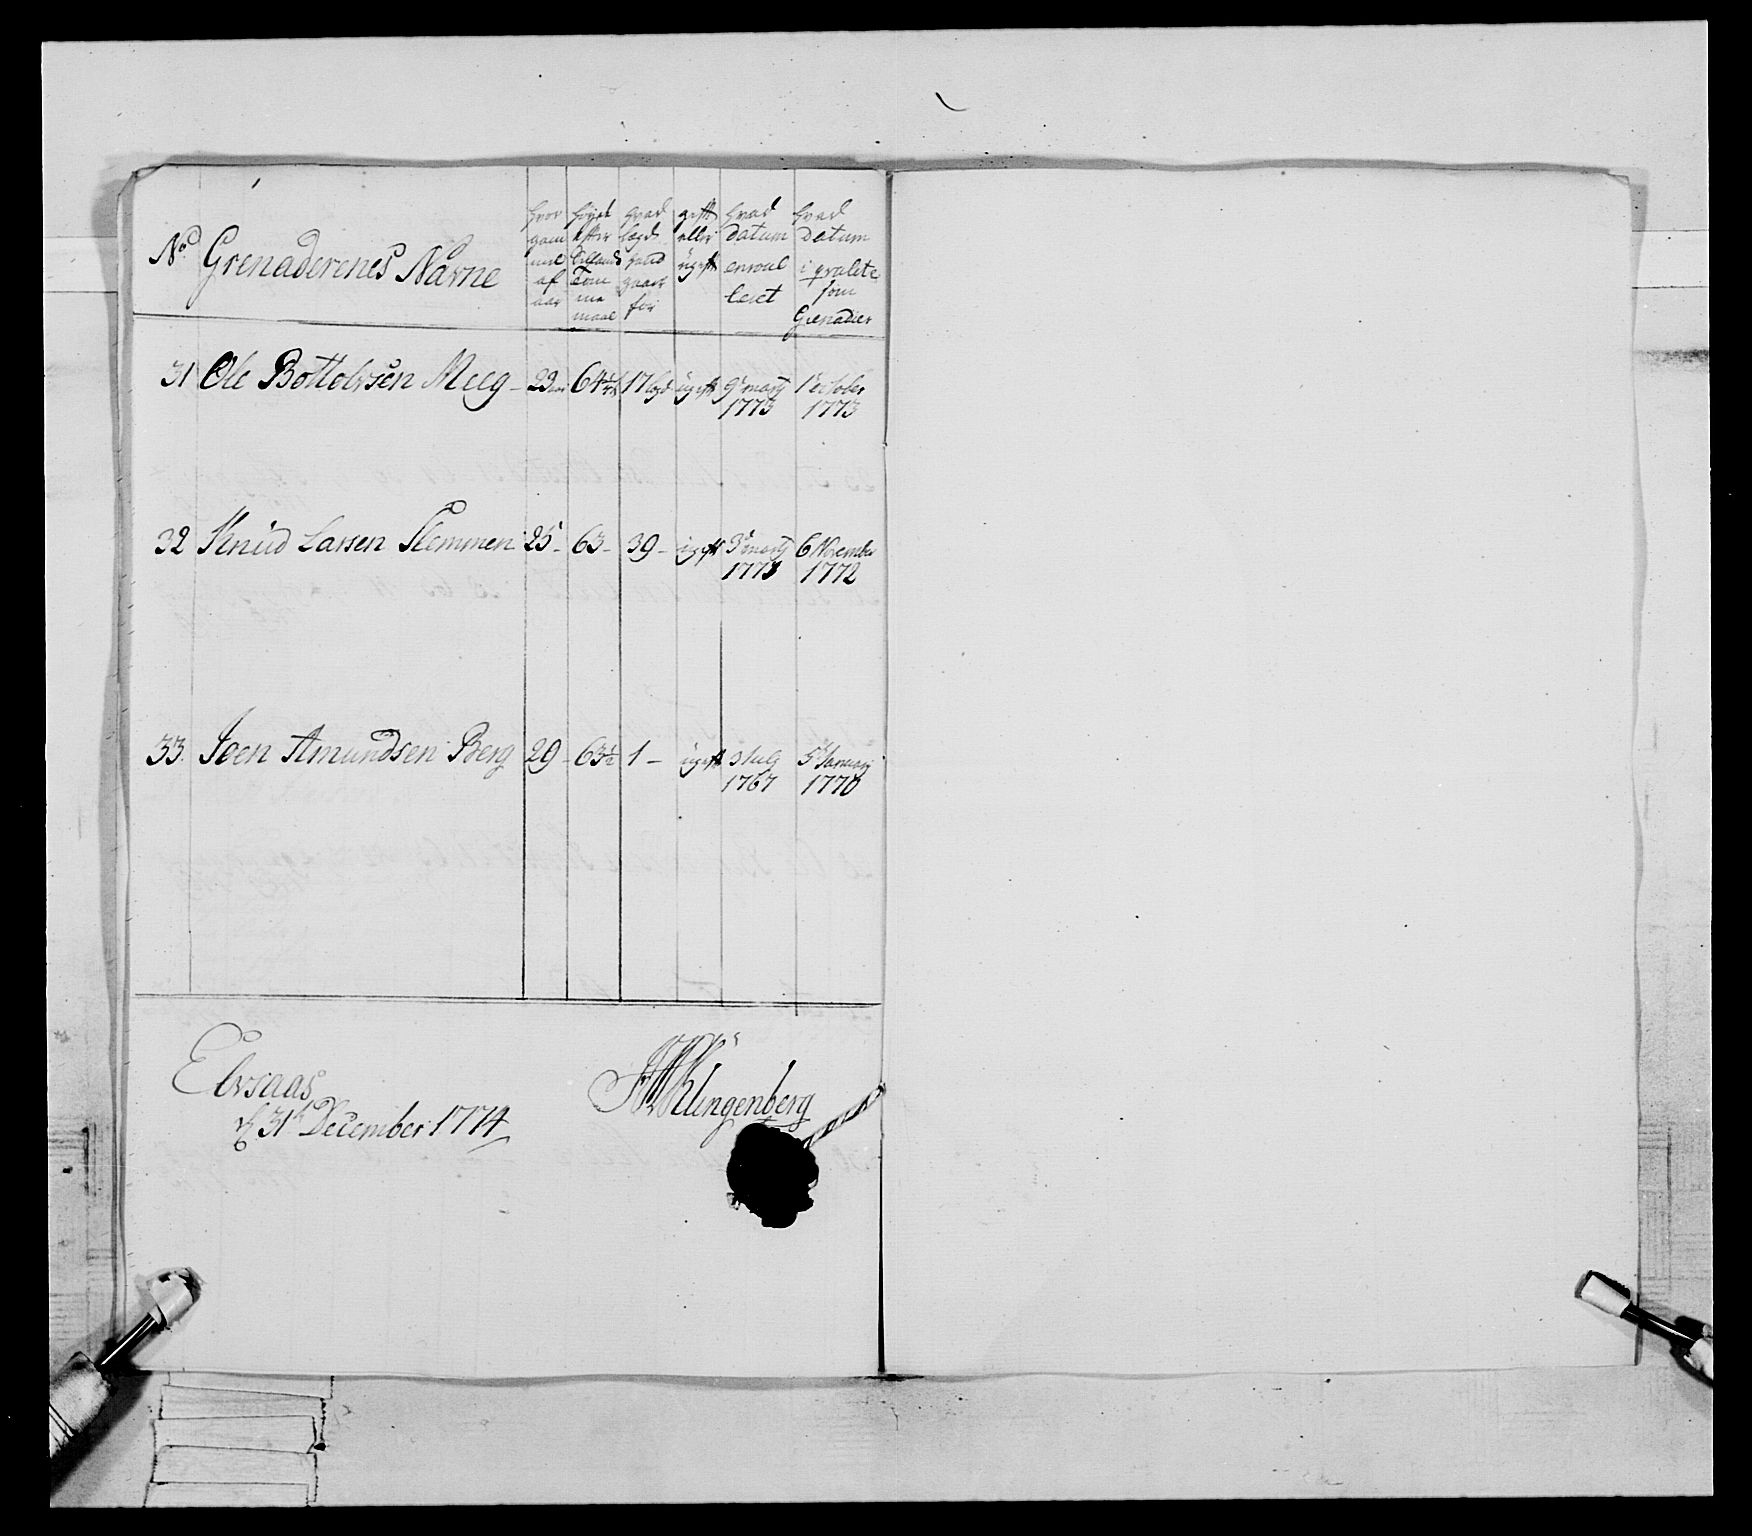 No Grenaderenes Navne
hvor gammel af aar
høyde efter Sællands Tommemaal
hvad lægd hand gaaer for
gift eller ugift
hvad datum enroulleret
hvad Datum i qvalite som Grenadier
31 Ole Bottolvsen Meeg - 23 64 17 lægd ugift 9 martij 1773 1 October 1773
32 Knud Larsen Flemmen 25 - 63 - 39 - ugift 3 martij 1773 6 November 1772
33. Joen Amundsen Berg 29 - 63½ 1 - ugift 1767 5 Januarij 1770
Elvsaas
d 31t December 1774
Klingenberg